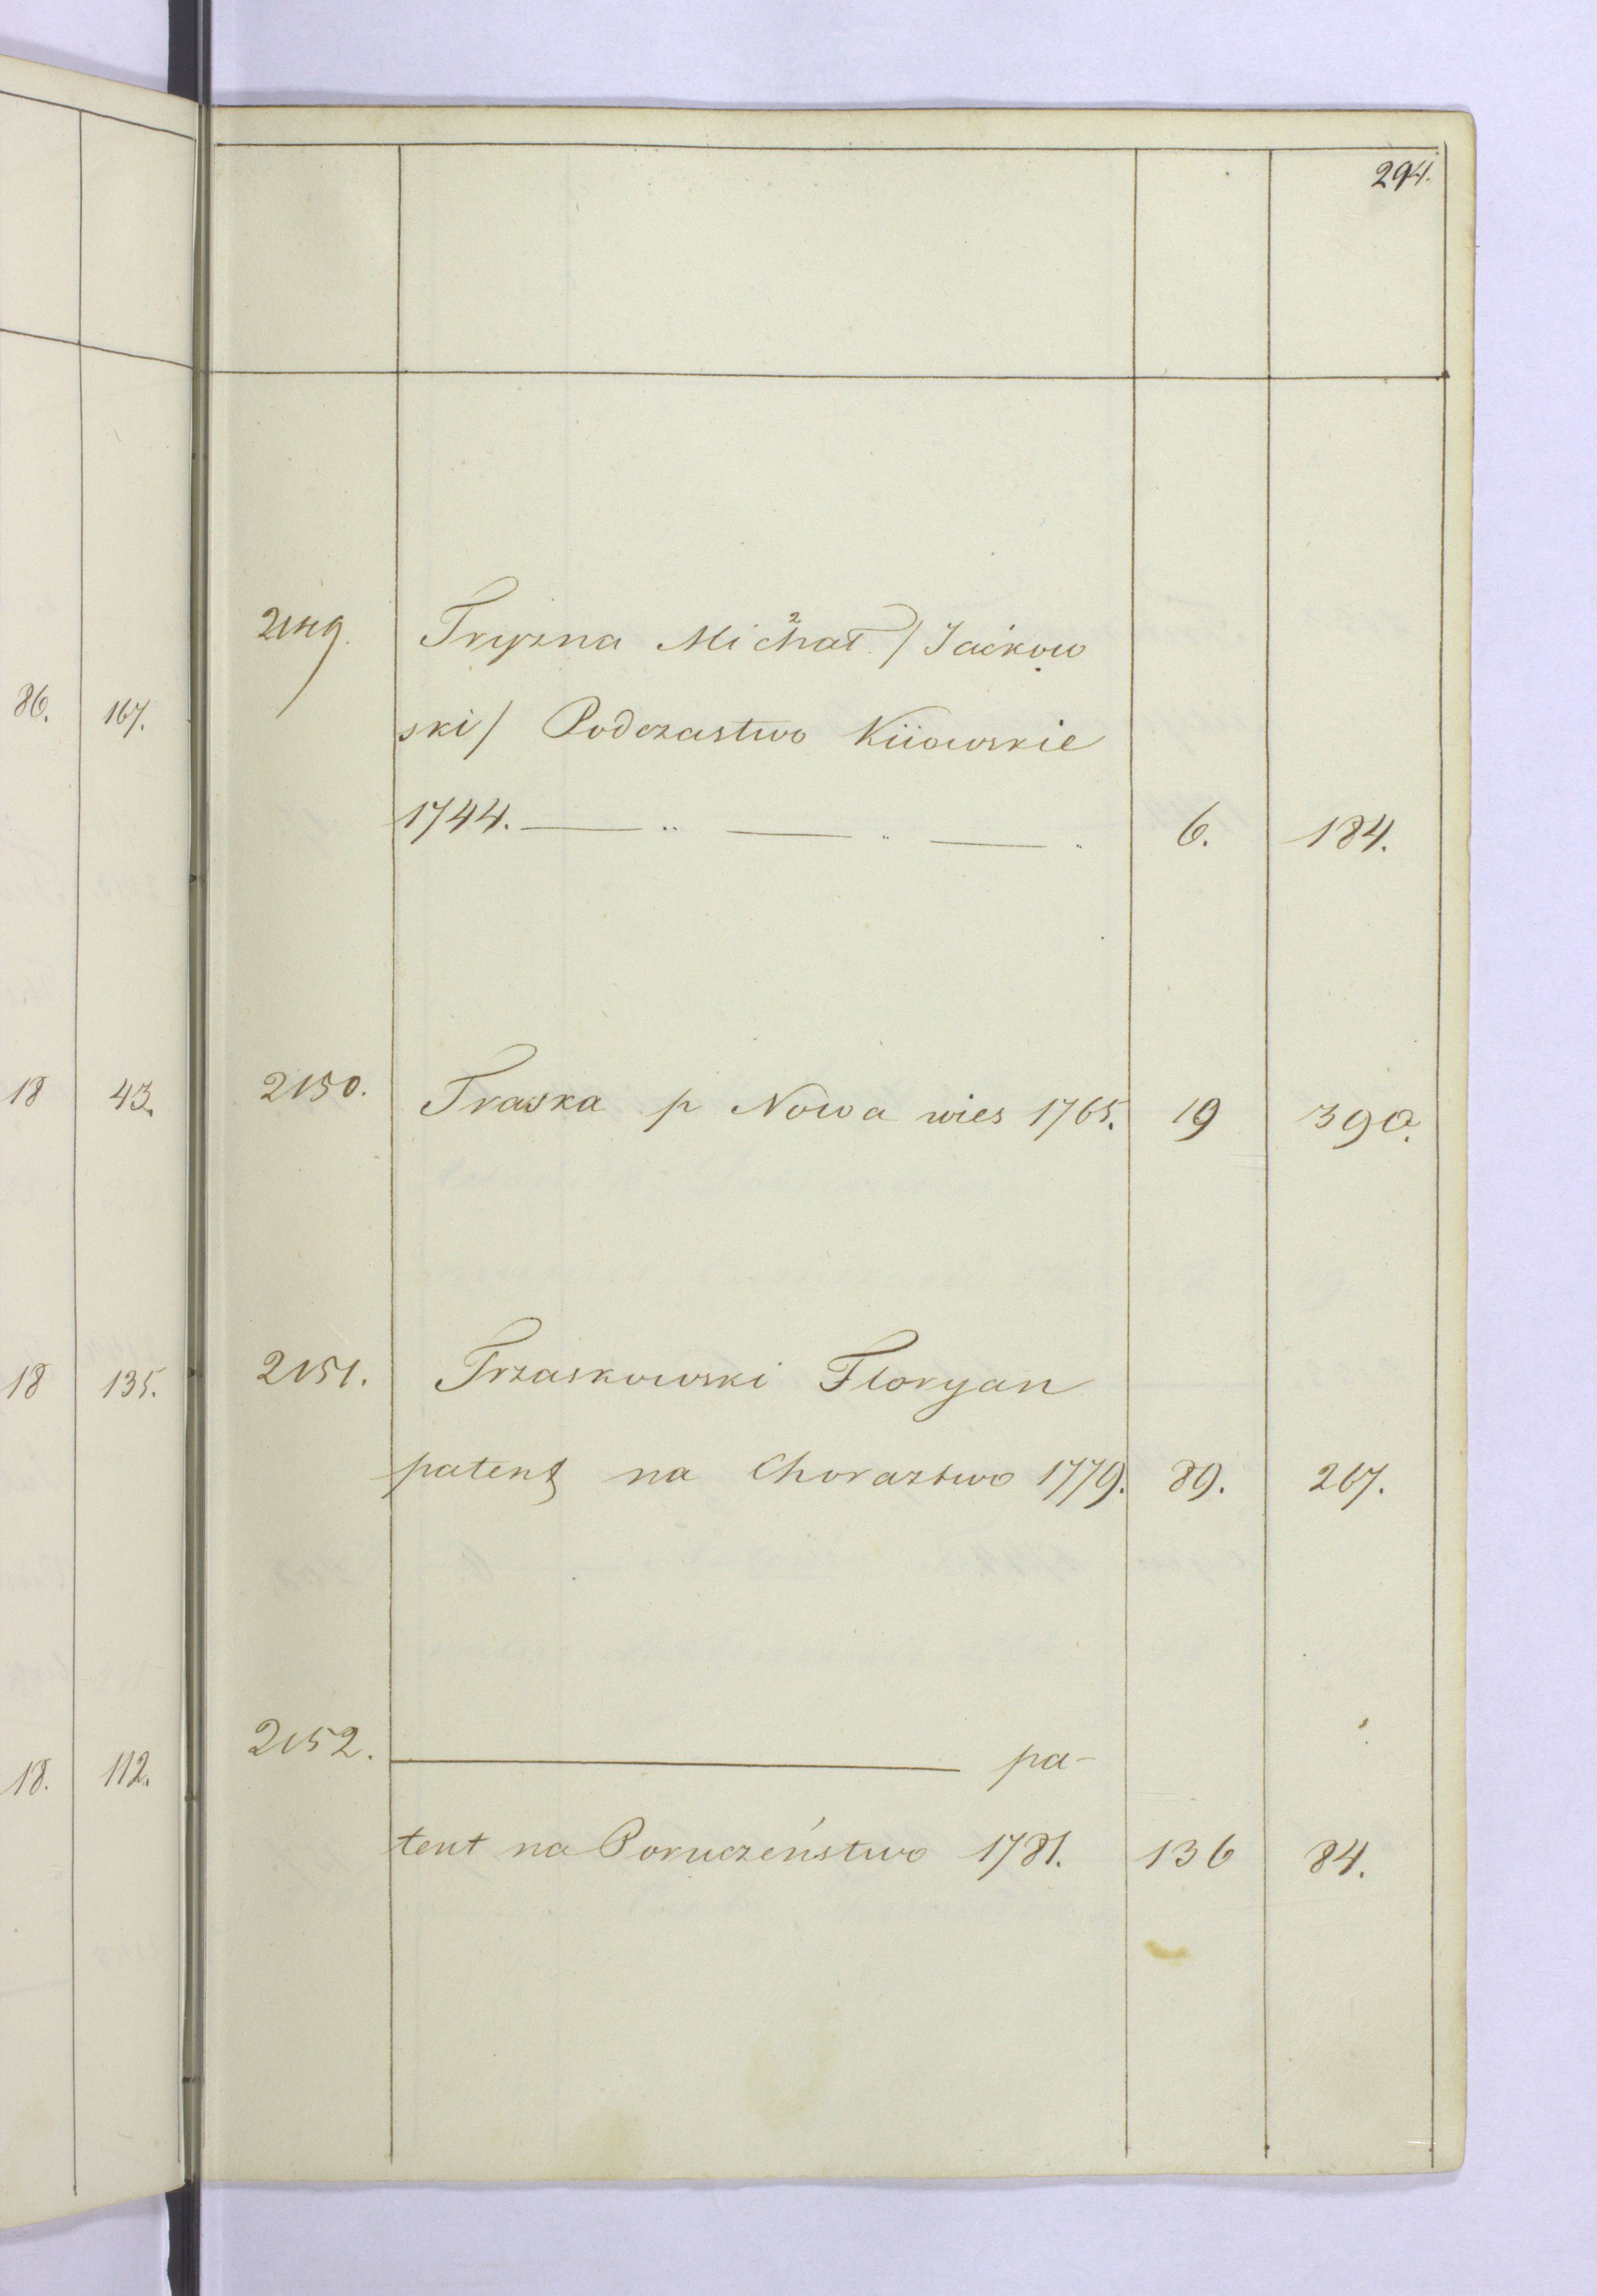 294.
2149. Tryzna Michał / Jackow
ski / Podczastwo Kiiowskie
1744. — „ — „ — „ 6. 184.
2150. Traska p Nowa wies 1765. 19 390.
2151. Trzaskowski Floryan
patent na Chorąztwo 1779. 89. 267.
2152. ——— pa-
tent na Poruczeństwo 1781. 136 84.
86. 167.
18 43.
18 135.
18. 112.